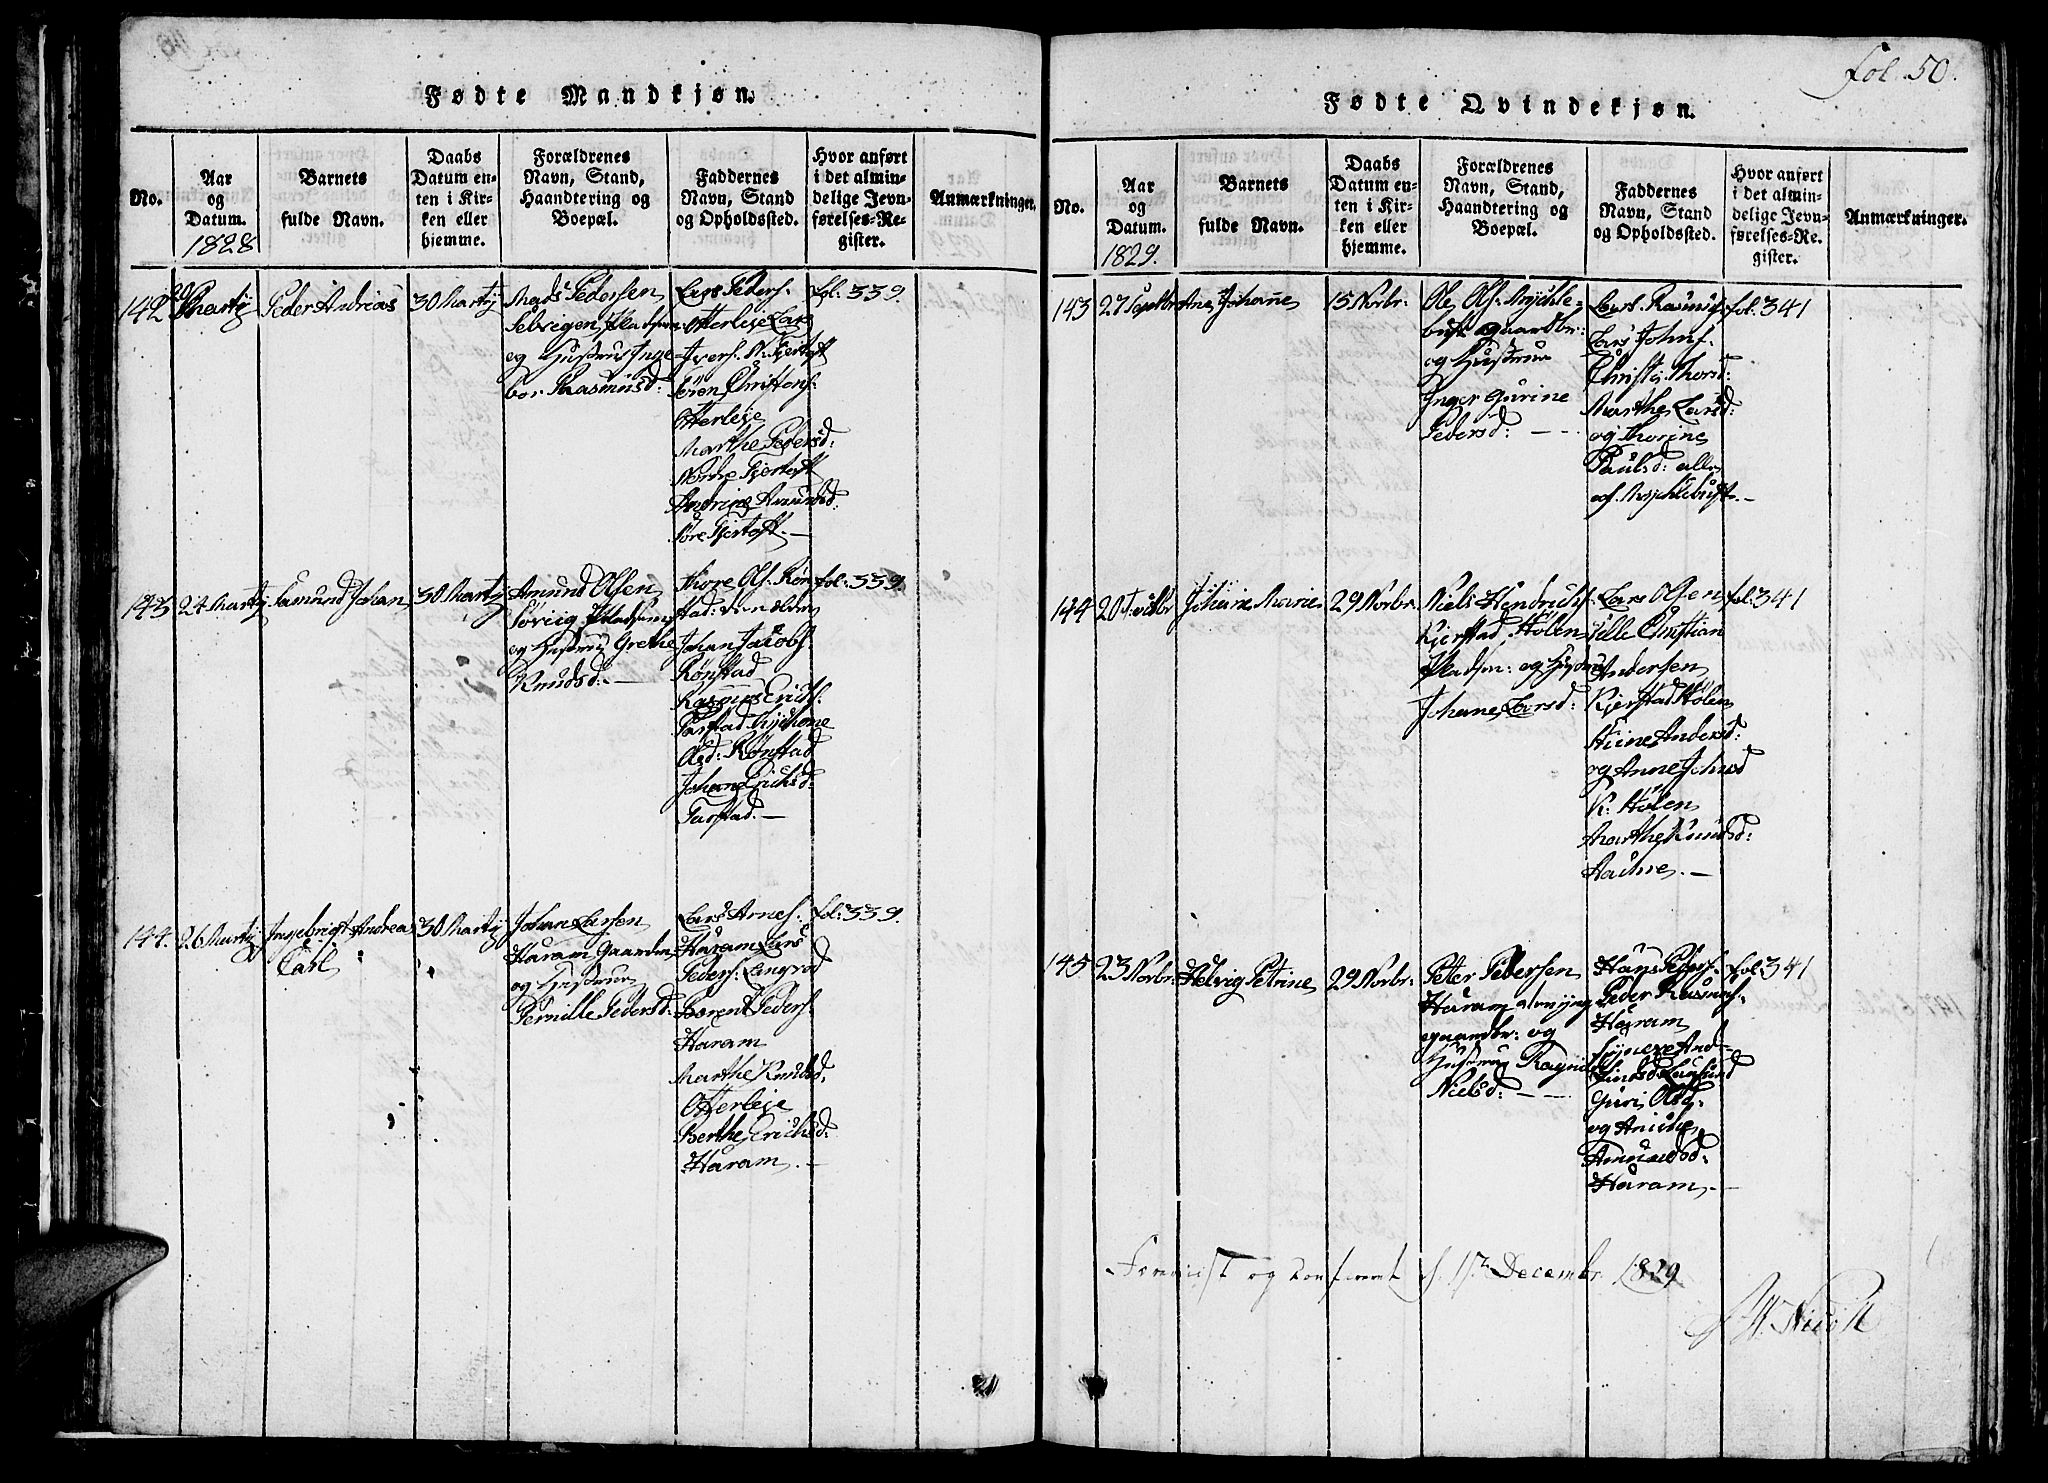 Fødte Mandkjøn.
No.
Aar
og
Datum.
1828
Barnets
fulde Navn.
Daabs
Datum en-
ten i Kir-
ken eller
hjemme.
Forældrenes
Navn, Stand,
Haandtering og
Boepæl.
Faddernes
Navn, Stand
og Opholdssted.
Hvor anført
i det almin-
delige Jevn-
førelses-Re-
gister.
Anmærkninger.
142
20 Martij
Peder Andreas
30 Martij
Mads Pedersen
og Hustrue Inge-
bor Rasmusd:
Lars Peders:
Otterleje Lars
Ivers: N. Fjertoft
Sören Christens:
Otterleje
Marthe Pedersd:
Nordre Fjertoft
Andrine Amundsd:
Søre Fjertoft. —
fol: 339.
143
24 Martij
Samund Johan
30 Martij
Amund Olsen
og Hustrue Grethe
Knudsd: —
Thore Ols: Røn-
Johan Jacobs:
Rønstad
Rasmus Erichs:
Olsd: Rønstad
Johane Erichsd:
Farstad. —
fol: 339.
144.
26 Martij
Ingebrigt Andreas
Carl
30 Martij
Johan Larsen
Haram Gaardm
og Hustrue
Pernille Pedersd:
Lars Arnes:
Haram Lars
Peders: Longvad
Borent Peders:
Haram
Marthe Knudsd.
Otterleje
Berthe Erichsd:
Haram. —
fol: 339.
fol. 50.
Fødte Qvindekjøn.
No.
Aar
og
Datum.
1829.
Barnets
fulde Navn.
Daabs
Datum en-
ten i Kir-
ken eller
hjemme.
Forældrenes
Navn, Stand,
Haandtering og
Boepæl.
Faddernes
Navn, Stand
og Opholdssted.
Hvor anført
i det almin-
delige Jevn-
førelses-Re-
gister.
Anmærkninger.
143
27 Septbr
Ane Johanne
15 Novbr:
Ole Ols: Myckle-
bust Gaardbr:
og Hustrue
Inger Gurine
Pedersd: — -
Lars Rasmus:
Lars Johns:
Marthe Larsd:
og Thorine
Paulsd: alle
af Mychlebust. —
fol. 341
144
20
Johane Marie
29 Novbr.
Niels Hendrichs:
Kjerstad Hølen
Pladsm: og Hustrue
Johane Larsd:
Lars Olsen
Christian
Andersen
Kjerstad Hølen
Stine Andersd:
og Anne Johnsd
K: Hølen
Marthe Knudsd:
fol: 341
145
23 Novbr:
Helvig Petrine
29 Novbr:
Peter Pedersen
Haram
gaardbr: og
Hustrue
Nielsd: — -
Hans Peders:
Peder Rasmus:
Haram
Guri Olsd:
og Anne
Amundsd:
Haram. —
fol: 341
og Decembr. 1829